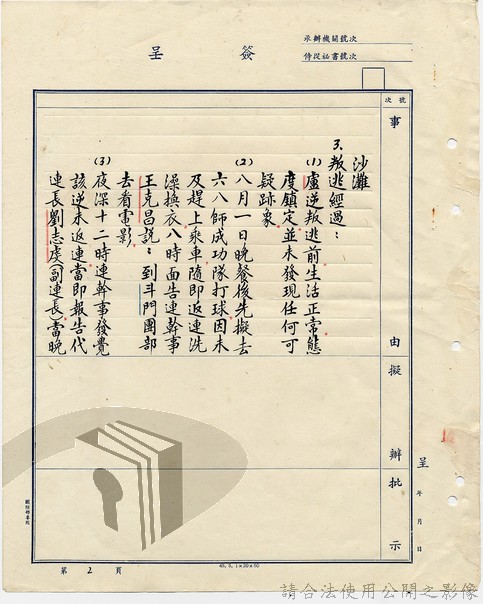 簽呈
承辦機關號次
侍從祕書號次
號次
事由
擬辦
批示
沙灘
3. 叛逃經過：
(1) 盧逆叛逃前生活正常態
度鎮定並未發現任何可
疑跡象。
(2) 八月一日晚餐後先擬去
六八師成功隊打球，因未
及趕上乘車，隨即返連洗
澡換衣，八時面告連幹事
王克昌說：到斗門團部
去看電影，
(3) 夜深十二時連幹事發覺
該逆未返連，當即報告代
連長劉志虔（副連長），當晚
呈
年
月
日
第2頁
請合法使用公開之影像